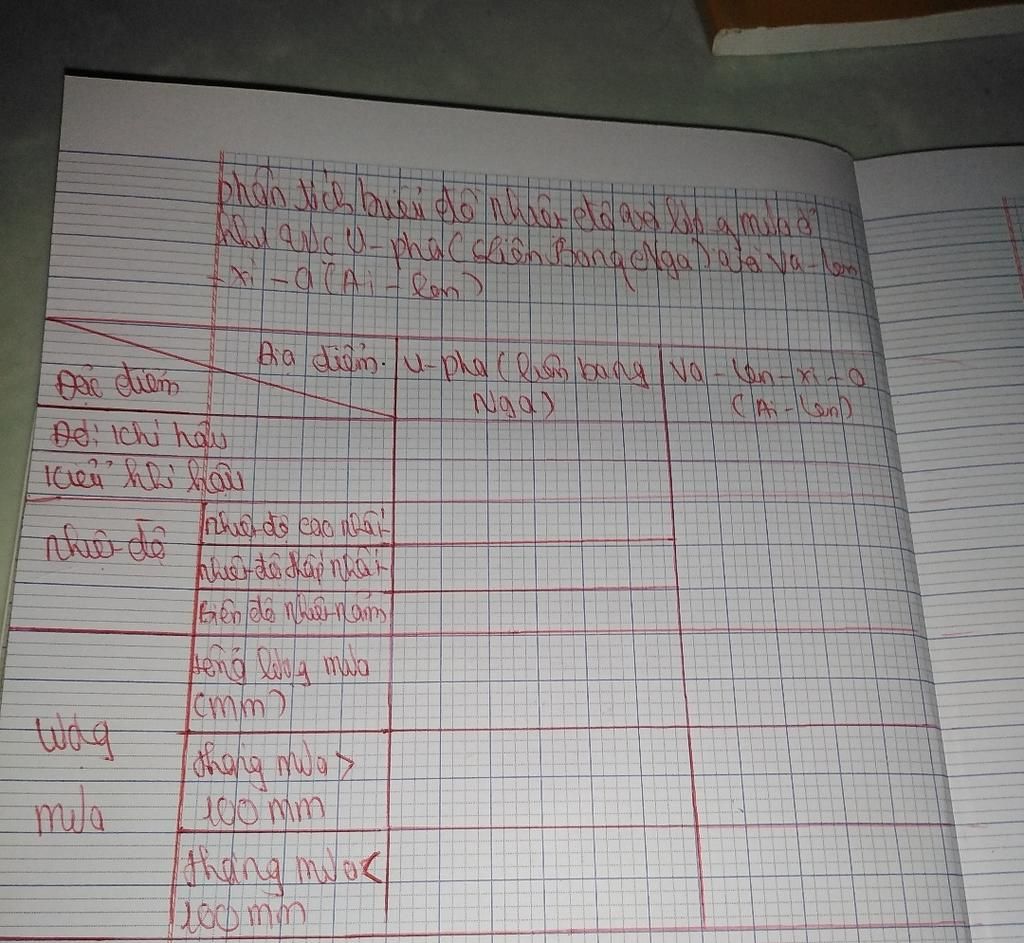 phân tích biểu đồ nhiệt độ và lượng mưa ở
khu vực U-pha (Liên Bang Nga) và Va-len
-xi-a (Ai-len)
Địa điểm. U-pha (Liên bang Va-len-xi-a
Đặc điểm Nga) (Ai-len)
Đới khí hậu
Kiểu khí hậu
nhiệt độ nhiệt độ cao nhất
nhiệt độ thấp nhất
biên độ nhiệt năm
tổng lượng mưa
(mm)
lượng tháng mưa >
mưa 100 mm
tháng mưa <
100 mm